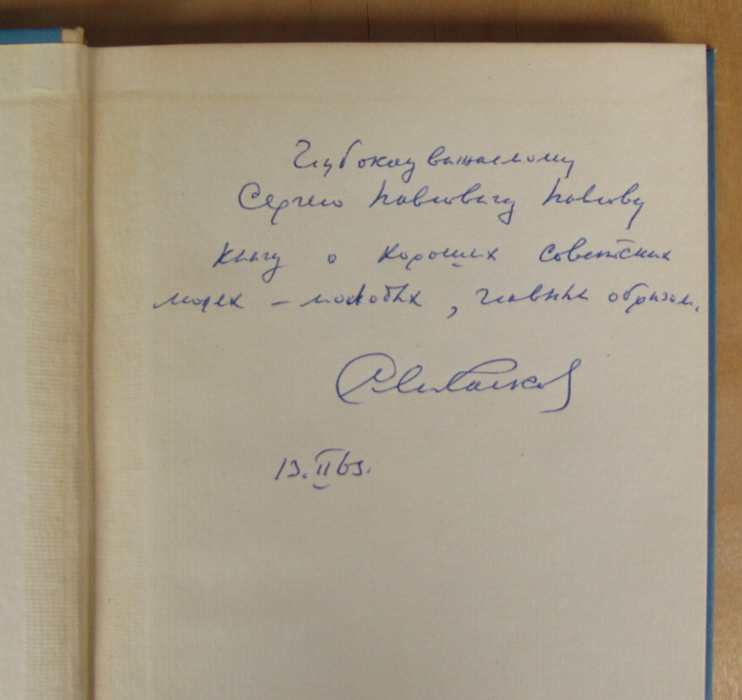 Глубокоуважаемому
Сергею Павловичу Павлову
книгу о хороших советских
людях – молодых, главным образом.
13.II 63.